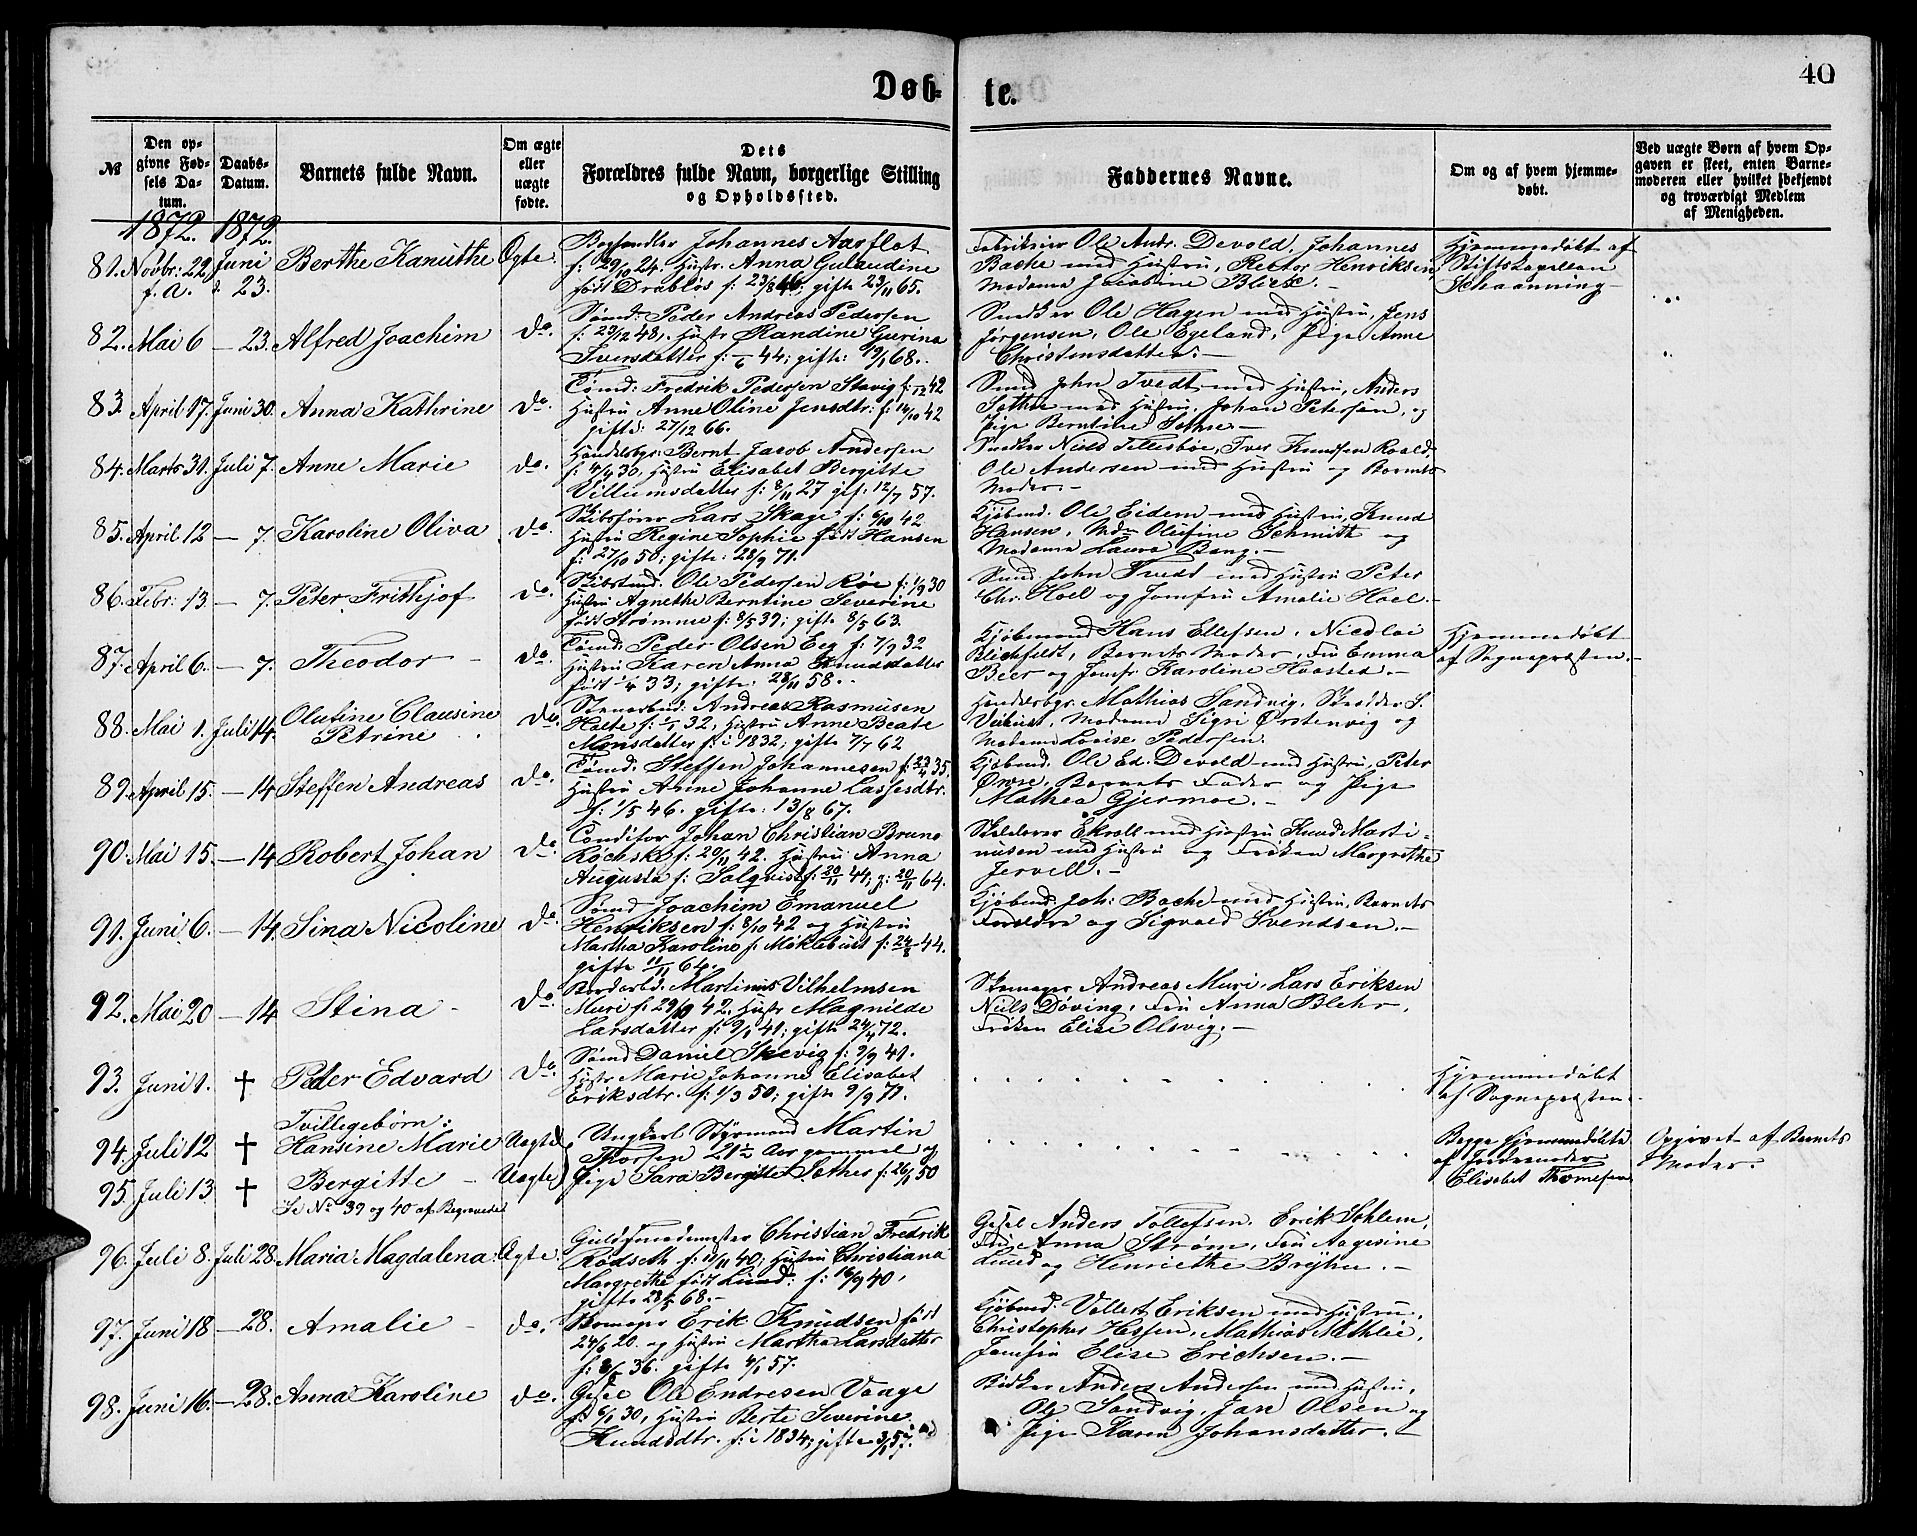 Døb-
te.
40
№
Den op-
givne Fød-
sels Da-
tum.
Daabs-
Datum.
Barnets fulde Navn.
Om ægte
eller
uægte
fødte.
Dets
Forældres fulde Navn, borgerlige Stilling
og Opholdssted.
Faddernes Navne.
Om og af hvem hjemme-
døbt.
Ved uægte Børn af hvem Op-
gaven er skeet, enten Barne-
moderen eller hvilket bekjendt
og troværdigt Medlem
af Menigheden.
1872. 1872.
81. Novbr: 22 f. A. Juni 23. Berthe Kanutthe Ægte.
Johannes Aarflot
f: 29/10 24. Hustr. Anna Gulaudine
født Drabløs f: 23/8 46; gifte 23/11 65.
Fabrikeier Ole Andr. Devold, Johannes
Bache med Hustru, Rector Henriksen,
Madame Jacobine Blich.
Hjemmedøbt af
Stiftskapellan
Schaanning
82. Mai 6 — 23. Alfred Joachim do.
Sømd: Peder Andreas Pedersen
f: 29/12 48, Hustr Randine Gurina
Iversdatter f: 44; gifte: 19/1 68.
Snedker Ole Hagen med Hustru, Jens
Jørgensen, Ole Egeland, Pige Anne
Christensdatter.
83. April 17. Juni 30. Anna Kathrine do.
Tømd: Fredrik Pedersen Stavig f: 42
Hustru Anne Oline Jensdtr: f: 14/10 42
gifte: 27/12 66.
Smed John Tvedt med Hustru, Anders
Sothe med Hustru, Johan Petersen, og
Pige Berntine Sothe.
84. Marts 31. Juli 7. Anne Marie do.
Handelsbgr: Bernt Jacob Andersen
f: 4/9 30. Hustru Elisabet Bergitte
Villumsdatter f: 8/11 27 gif: 12/7 57.
Snedker Niels Tellesbøe, Iver Knudsen Roald,
Ole Andersen med Hustru og Barnets
Moder.
85. April 12 — 7. Karoline Oliva do.
Skibsfører Lars Skage f: 6/10 42
Hustru Regine Sophie født Hansen
f: 27/10 50; gifte: 28/9 71.
Kjøbmd. Ole Eidem med Hustru, Knud
Hansen, Mdm Olufine Schmith og
Madame Laura Bang.
86. Febr: 13 — 7. Peter Frithjof do.
Skibstmd. Ole Pedersen Røe f: 1/9 30
Hustru Agnethe Berntine Severine
født Strømme f: 8/5 39; gifte 8/5 63.
Smed John Tvedt med Hustru Peter
Chr. Hoel og Jomfru Amalie Hoel.
87. April 6. — 7. Theodor do.
Tømd: Peder Olsen Eeg f: 7/9 32
Hustru Karen Anna Knudsdatter
født 33; gifte: 28/11 58.
Kjøbmand Hans Ellefsen, Nicolai
Blichfeldt, Barnets Moder, Fru Emma
Beer og Jomfr Karoline Haasted.
Hjemmedøbt
af Sognepræsten.
88. Mai 1. Juli 14. Olufine Clausine
Petrine do.
Stenarbeid: Andreas Rasmusen
Holte f: 32, Hustru Anne Beate
Monsdatter f: i 1832; gifte 7/7 62
Handelsbgr. Mathias Sandvig, Skrædder S.
Madame Sigri Ørstenvig og
Madame Lovise Pedersen.
89. April 15. — 14 Steffen Andreas do.
Tømd. Steffen Johannesen f: 35,
Hustru Anne Johanne Lassesdtr.
f: 1/5 46. gifte: 13/8 67.
Kjøbmd. Ole Ed. Devold med Hustru, Peter
Barnets Fader og Pige
Mathea Gjermoe.
90. Mai 15. — 14 Robert Johan do.
Conditor Johan Christian Bruno
f: 20/11 42. Hustru Anna
Augusta f: Salqvist f: 20/11 44; g: 20/11 64.
Skoldover Ekroll med Hustru Knud Marti-
nusen med Hustru og Frøken Margrethe
Jervell.
91. Juni 6. — 14. Sina Nicoline do.
Sømd Joachim Emanuel
Henriksen f: 8/10 42 og Hustru
Martha Karoline f: Møklebust f: 24/8 44.
gifte 11/11 64.
Kjøbmd. Joh: Bache med Hustru, Barnets
Forældre og Sigvald Svendsen.
92. Mai 20 — 14 Stina do.
Martinus Vilhelmsen
Muri f: 29/10 42, Hustr Magnilde
Larsdatter f: 9/1 41; gifte 24/4 72.
Skomager Andreas Muri, Lars Eriksen
Niels Døving, Fru Anna Blehr,
Frøken Elise Olsvig.
93. Juni 1. † Peter Edvard do.
Sømd Daniel Skevig f: 9/9 41.
Hustr Marie Johanne Elisabet
Eriksdtr. f: 1/3 50; gifte 9/9 71.
Hjemmedøbt
af Sognepræsten.
Tvillegebørn:
94. Juli 12 † Hansine Marie Uægte
95. Juli 13 † Bergitte Uægte
Se No 39 og 40 af Begravede
Ungkarl Styrmand Martin
Thorsen 21½ Aar gammel og
Pige Sara Bergitte Sethes f: 26/1 50
Begge hjemmedøbte
af Jordemoder
Elisabet Thomesen
Opgivet af Barnets
Moder.
96. Juli 8. Juli 28. Maria Magdalena Ægte.
Guldsmedmester Christian Fredrik
Rødseth f: 11/11 40; Hustru Christiana
Margrethe født Lund: f: 16/9 40,
gifte 28/5 68.
Gesel Anders Tollefsen, Erik Sohlem,
Frue Anna Strøm, Fru Aagesine
Lund og Henriethe Bryhn.
97. Juni 18 — 28. Amalie do.
Erik Knudsen født
24/6 20. og Hustru Martha Larsdatter
f: 36. gifte 4/1 57.
Kjøbmd. Vollert Eriksen med Hustru,
Christopher Hessen, Mathias Mithlie,
Jomfru Elise Erichsen.
98. Juni 16. — 28. Anna Karoline do.
Gesel Ole Endresen Vaage
f: 6/1 30, Hustru Berte Severine
Knudsdtr. f: i 1834; gifte 3/1 57.
Bødker Anders Andersen med Hustru,
Ole Sandvig, Jan Olsen og
Pige Karen Johansdatter.